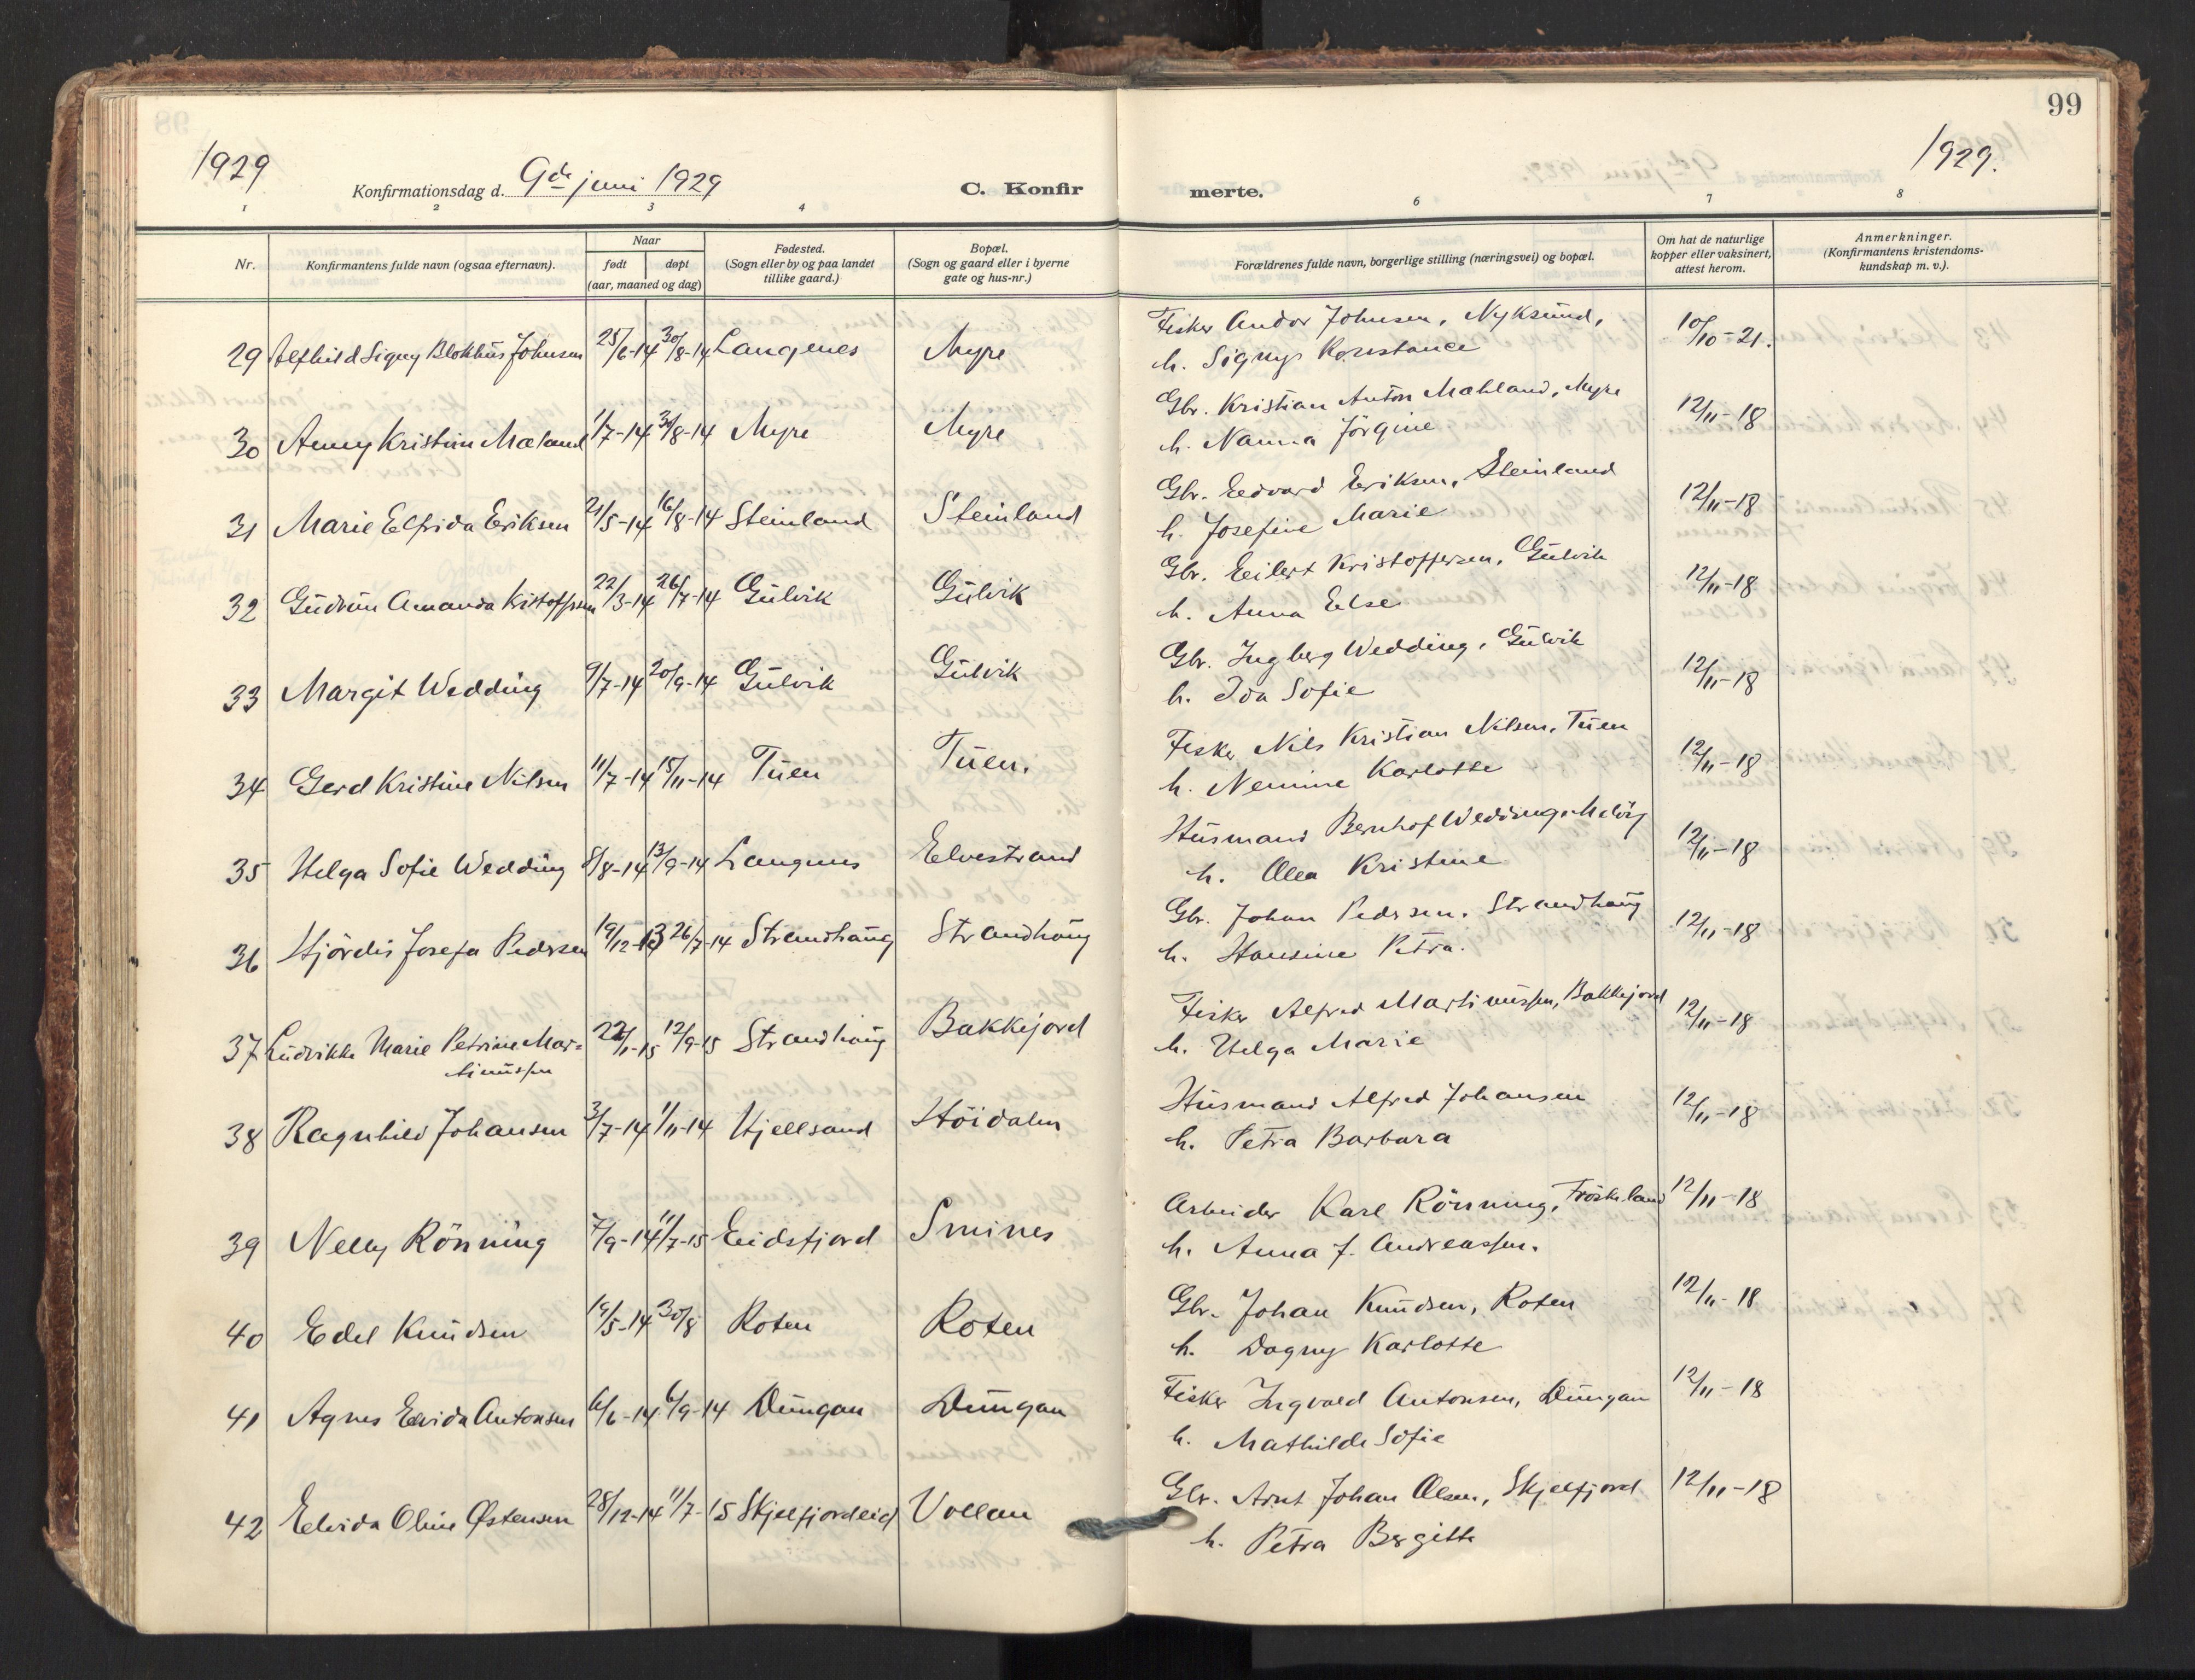 99
1929
Konfirmationsdag d. 9de juni 1929
C. Konfir
merte.
1929.
1 2 3 4 6 7 8
Nr.
Konfirmantens fulde navn (ogsaa efternavn).
Naar
født døpt
(aar, maaned og dag)
Fødested.
(Sogn eller by og paa landet
tillike gaard.)
Bopæl.
(Sogn og gaard eller i byerne
gate og hus-nr.)
Forældrenes fulde navn, borgerlige stilling (næringsvei) og bopæl.
Om hat de naturlige
kopper eller vaksinert,
attest herom.
Anmerkninger.
(Konfirmantens kristendoms-
kundskap m. v.).
Fisker Andor Johnsen, Nyksund,
29 Alfhild Signy Blokhus Johnsen 25/6-14 30/8-14 Langenes Myre 10/10-21.
h. Signy Konstance
Gbr. Kristian Anton Mæhland, Myre
30 Anny Kristine Mæland 1/7-14 30/8-14 Myre Myre 12/11-18
h. Nanna Jörgine
Gbr. Edvard Eriksen, Steinland
31 Marie Elfrida Eriksen 21/5-14 16/8-14 Steinland Steinland 12/11-18
h. Josefine Marie
Gbr. Eilert Kristoffersen, Gulvik
32 Gudrun Amanda Kristoffersen 22/3-14 26/7-14 Gulvik Gulvik 12/11-18
h. Anna Else
Gbr. Ingberg Wedding, Gulvik
33 Margit Wedding 9/7-14 20/9-14 Gulvik Gulvik 12/11-18
h. Ida Sofie
Fisker Nils Kristian Nilsen, Tuen
34 Gerd Kristine Nilsen 11/7-14 15/11-14 Tuen Tuen. 12/11-18
h. Nemine Karlotte
Husmand Bernhof Wedding,
35 Helga Sofie Wedding 8/8-14 13/9-14 Langenes Elvestrand 12/11-18
h. Olea Kristine
Gbr. Johan Pedersen, Strandhaug
36 Hjördis Josefa Pedersen 19/12-13 26/7-14 Strandhaug Strandhaug 12/11-18
h. Hansine Petra.
Fisker Alfred Martinussen, Bakkejord
37 Ludvikke Marie Petrine Mar= 22/1-15 12/9-15 Strandhaug Bakkejord 12/11-18
tinussen
h. Helga Marie
Husmand Alfred Johansen
38 Ragnhild Johansen 3/7-14 1/11-14 Kjellsand Höidalen 12/11-18
h. Petra Barbara
Arbeider Karl Rönning, Fröskeland
39 Nelly Rönning 7/9-14 11/7-15 Eidsfjord Smines 12/11-18
h. Anna J. Andreassen.
Gbr. Johan Knudsen, Roten
40 Edel Knudsen 19/5-14 30/8 Roten Roten 12/11-18
h. Dagny Karlotte
Fisker Ingvald Antonsen, Dungan
41 Agnes Elvida Antonsen 6/6-14 6/9-14 Dungan Dungan 12/11-18
h. Mathilde Sofie
Gbr. Arnt Johan Olsen, Skjelfjord
42 Elvida Oline Østensen 28/12-14 11/7-15 Skjelfjordeid Vollan 12/11-18
h. Petra Bergitte